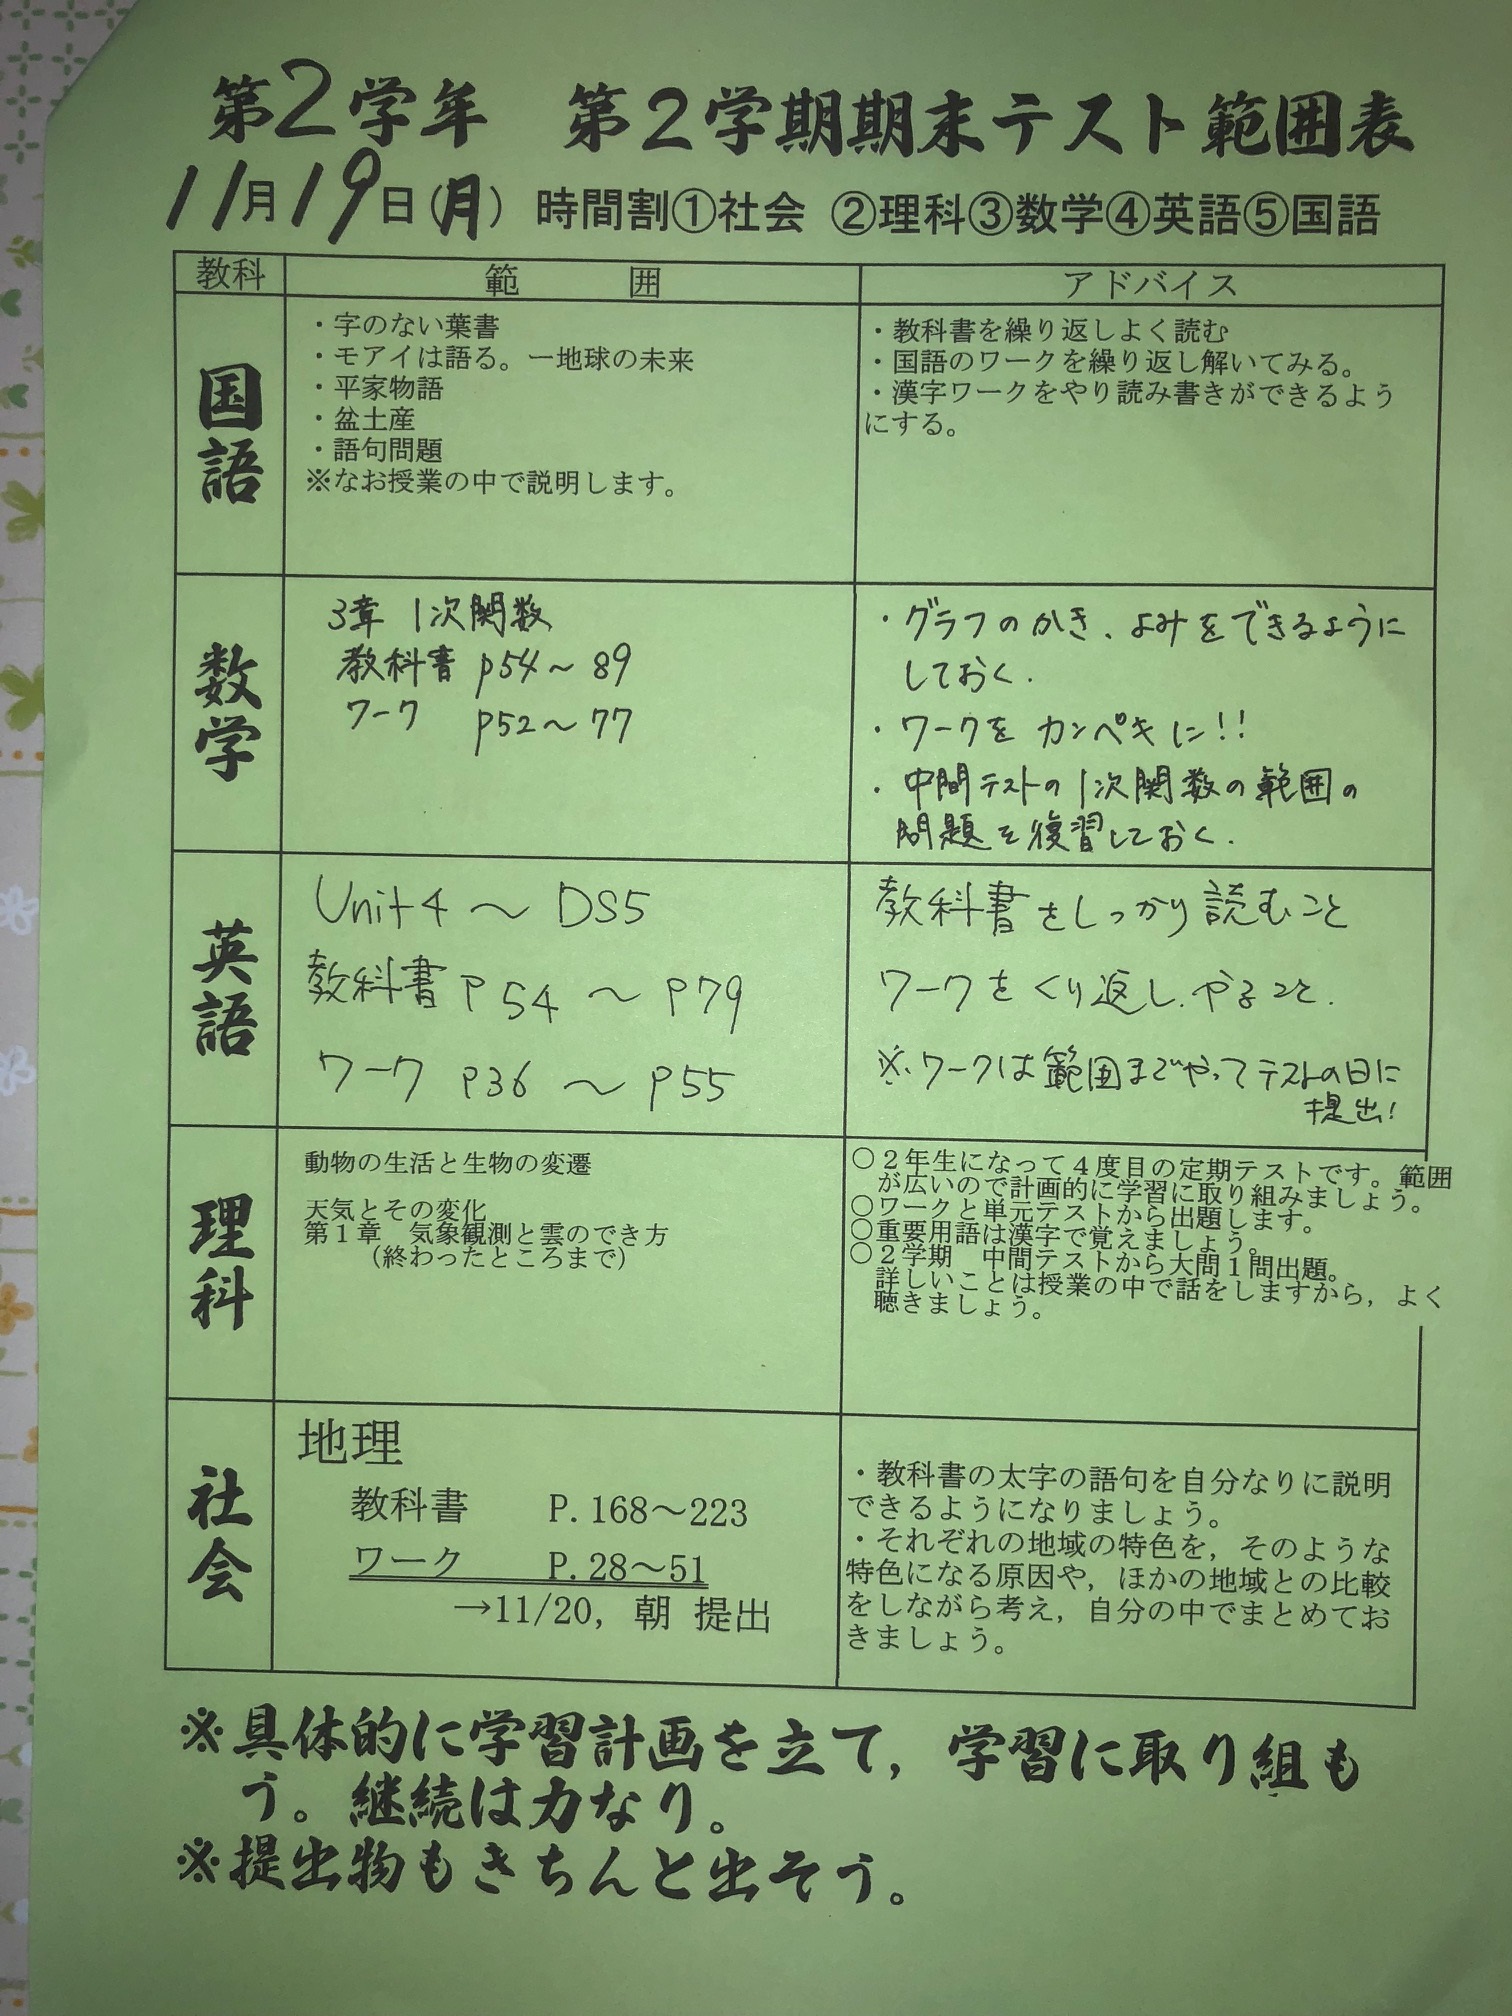 第2学年　第2学期期末テスト範囲表
11月19日(月) 時間割①社会 ②理科③数学④英語⑤国語
教科 範囲 アドバイス
国語
・字のない葉書
・モアイは語る。ー地球の未来
・平家物語
・盆土産
・語句問題
※なお授業の中で説明します。
・教科書を繰り返しよく読む
・国語のワークを繰り返し解いてみる。
・漢字ワークをやり読み書きができるよう
にする。
数学
3章 1次関数
教科書 p54～89
ワーク p52～77
・グラフのかき、よみをできるように
しておく.
・ワークを カンペキに!!
・中間テストの1次関数の範囲の
問題を復習しておく.
英語
Unit4 ～ DS5
教科書 P54 ～ P79
ワーク P36 ～ P55
教科書をしっかり読むこと
ワークをくり返し、やること.
※.ワークは範囲までやってテストの日に
提出!
理科
動物の生活と生物の変遷
天気とその変化
第1章　気象観測と雲のでき方
(終わったところまで)
○2年生になって4度目の定期テストです。範囲
が広いので計画的に学習に取り組みましょう。
○ワークと単元テストから出題します。
○重要用語は漢字で覚えましょう。
○2学期　中間テストから大問1問出題。
詳しいことは授業の中で話をしますから，よく
聴きましょう。
社会
地理
教科書 P.168～223
ワーク P.28～51
→11/20，朝 提出
・教科書の太字の語句を自分なりに説明
できるようになりましょう。
・それぞれの地域の特色を，そのような
特色になる原因や，ほかの地域との比較
をしながら考え，自分の中でまとめてお
きましょう。
※具体的に学習計画を立て，学習に取り組も
う。継続は力なり。
※提出物もきちんと出そう。